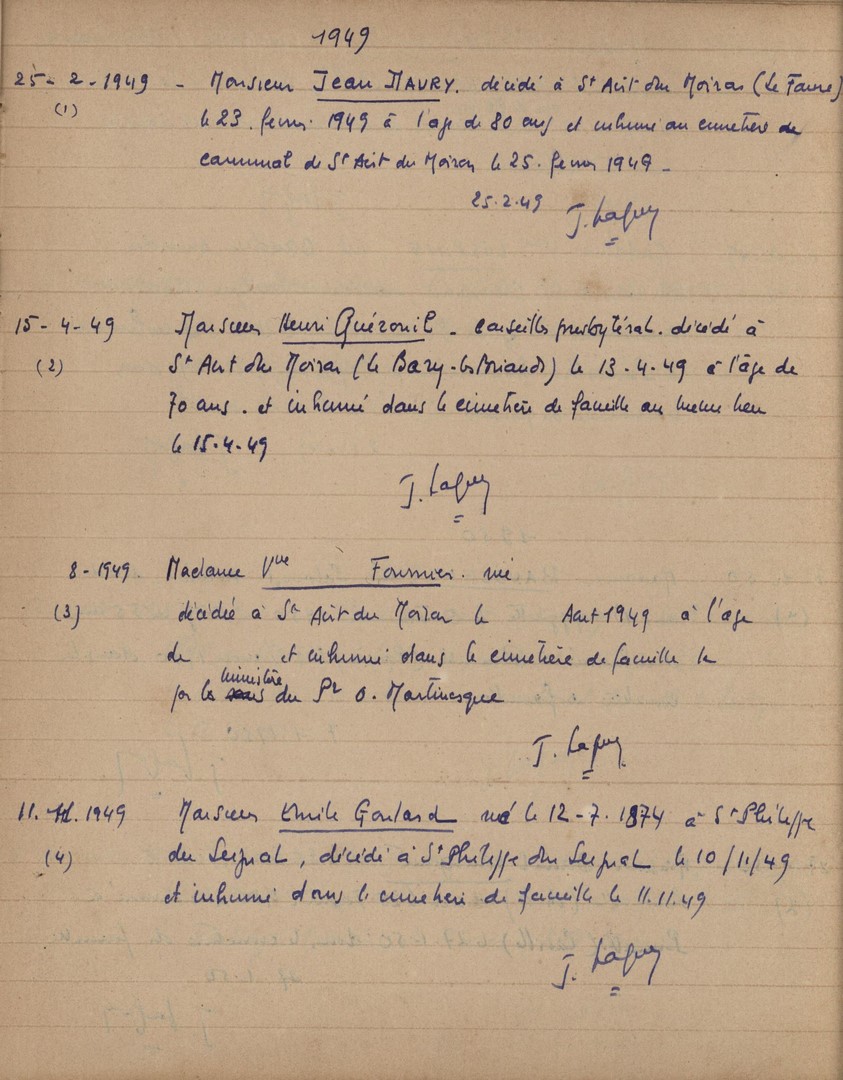 1949
25-2-1949 - Monsieur Jean MAURY. décédé à St Avit du Moiron (Le Faure)
(1)
le 23. fevrier 1949 à l'age de 80 ans et inhumé au cimetière de
communal de St Avit du Moiron le 25. fevrier 1949 -
25.2.49 J. Laguy
15-4-49 Monsieur Henri Quézouil - conseiller presbytéral. décédé à
(2) St Avit du Moiron (le Bary-les Briands) le 13.4.49 à l'âge de
70 ans. et inhumé dans le cimetière de famille au même lieu
le 15.4.49
J. Laguy
8-1949. Madame Vve Fournier. née
(3) décédée à St Avit du Moiron le Aout 1949 à l'age
de et inhumé dans le cimetière de famille le
ministère
par le du Pr O. Martinesque
J. Laguy
11. 11. 1949 Monsieur Emile Goulard né le 12-7-1874 à St Philippe
(4) du Seignal, décédé à St Philippe du Seignal le 10/11/49
et inhumé dans le cimetière de famille le 11.11.49
J. Laguy